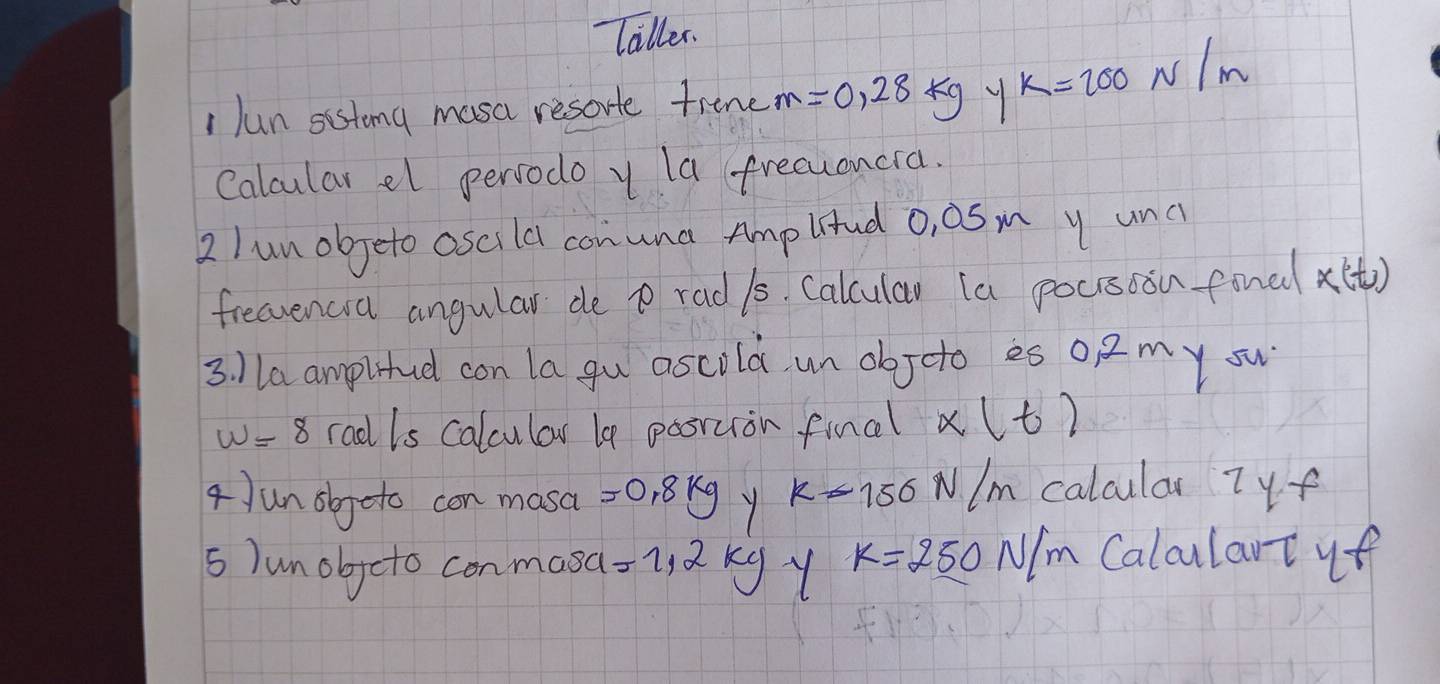 Taller.
1) un sistema masa resorte tiene m = 0,28 kg y K = 200 N/m
Calcular el periodo y la frecuencia.
2) un objeto oscila con una Amplitud 0,05 m y una
frecuencia angular de rad/s. Calcular la pocision final x(t)
3.) la amplitud con la qu oscila un objeto es 0,2 m y su
w = 8 rad/s Calcular la posicion final x(t)
4) un objeto con masa = 0,8 kg y K = 150 N/m calcular T y f
5) un objeto con masa = 1,2 kg y K = 250 N/m Calcular T y f